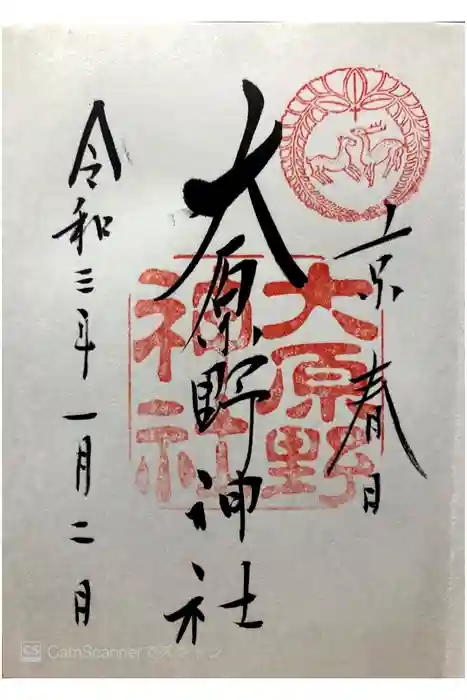 京春日
大原野神社
大原野
神社
令和三年一月二日
CS CamScannerでスキャン